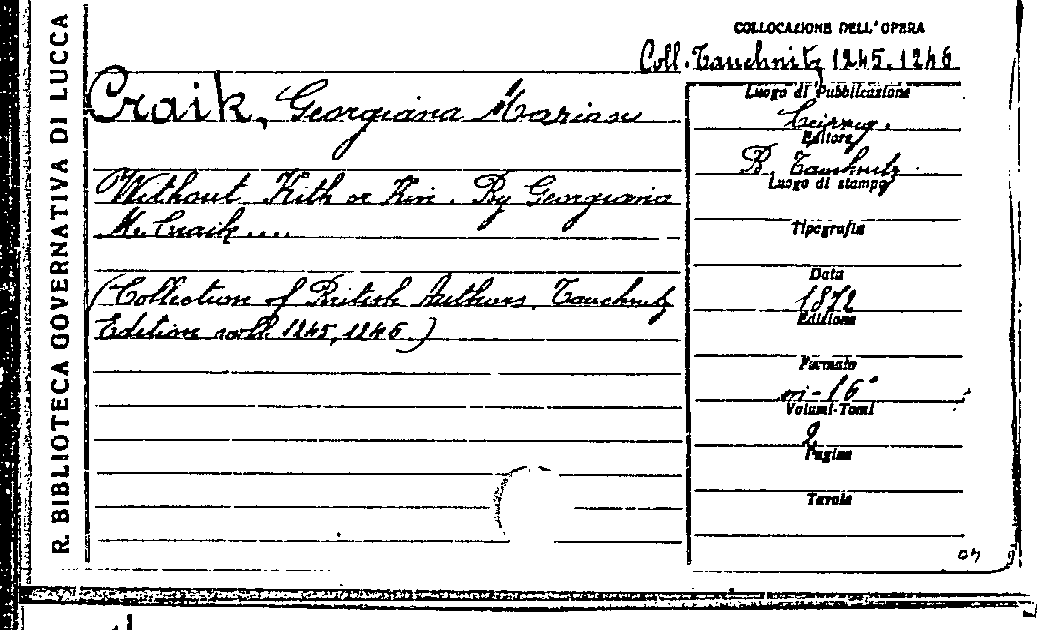 R. BIBLIOTECA GOVERNATIVA DI LUCCA
COLLOCAZIONE DELL'OPERA
Coll. Tauchnitz 1245.1246
Craik, Georgiana Marion
Without Kith or Kin. By Georgiana
M. Craik....
(Collection of British Authors. Tauchnitz
Edition voll. 1245, 1246.)
Luogo di Pubblicazione
Leipzig.
Editore
B. Tauchnitz.
Luogo di stampa
Tipografia
Data
1872
Edizione
Formato
in-16°
Volumi-Tomi
2
Pagine
Tavole